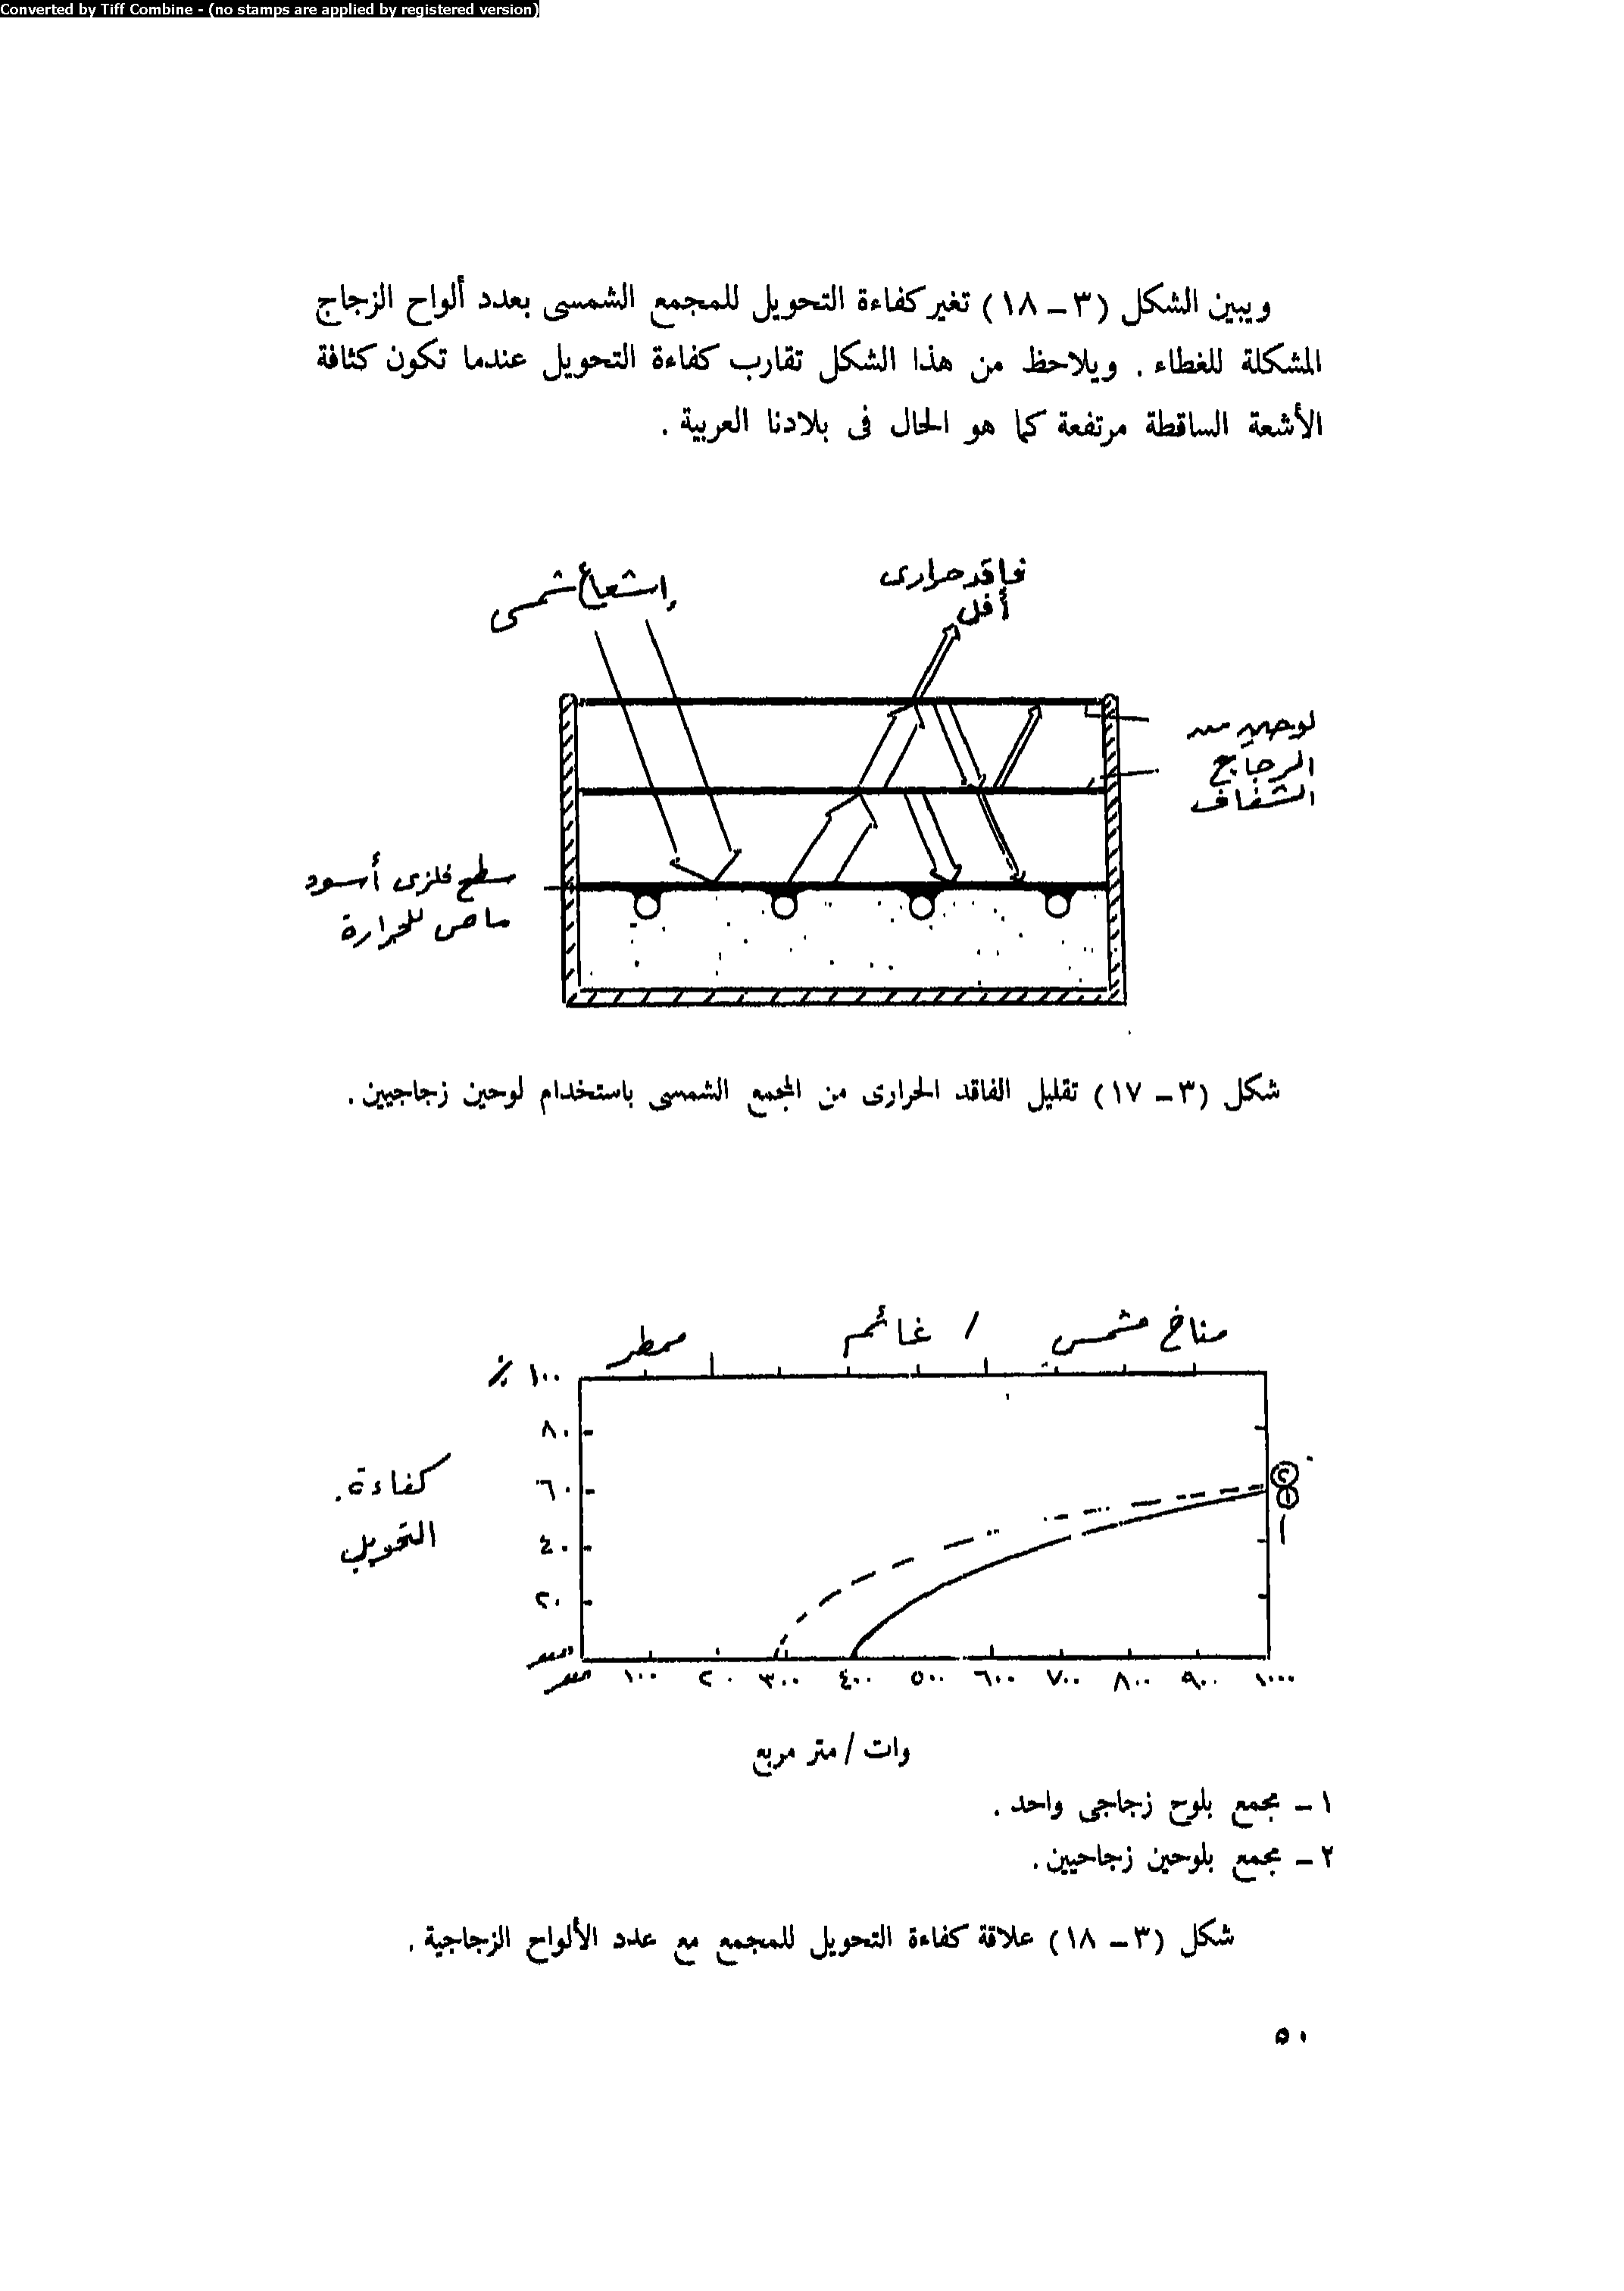 Converted by Tiff Combine - (no stamps are applied by registered version)
ويبين الشكل (٣ – ١٨) تغير كفاءة التحويل للمجمع الشمسى بعدد ألواح الزجاج
المشكلة للغطاء . ويلاحظ من هذا الشكل تقارب كفاءة التحويل عندما تكون كثافة
الأشعة الساقطة مرتفعة كما هو الحال فى بلادنا العربية .
إشعاع شمسى
فاقد حرارى
أقل
لوحين من
الزجاج
الشفاف
سطح فلزى أسود
ماص للحرارة
شكل (٣ – ١٧) تقليل الفاقد الحرارى من المجمع الشمسى باستخدام لوحين زجاجيين .
مناخ مشمس / غائم ممطر
١٠٠ ٪
٨٠
٦٠
٤٠
٢٠
صفر
كفاءة
التحويل
٢
١
١
صفر ١٠٠ ٢٠ ٣٠٠ ٤٠٠ ٥٠٠ ٦٠٠ ٧٠٠ ٨٠٠ ٩٠٠ ١٠٠٠
وات / متر مربع
١ – مجمع بلوح زجاجى واحد .
٢ – مجمع بلوحين زجاحيين .
شكل (٣ – ١٨) علاقة كفاءة التحويل للمجمع مع عدد الألواح الزجاجية .
٥٠